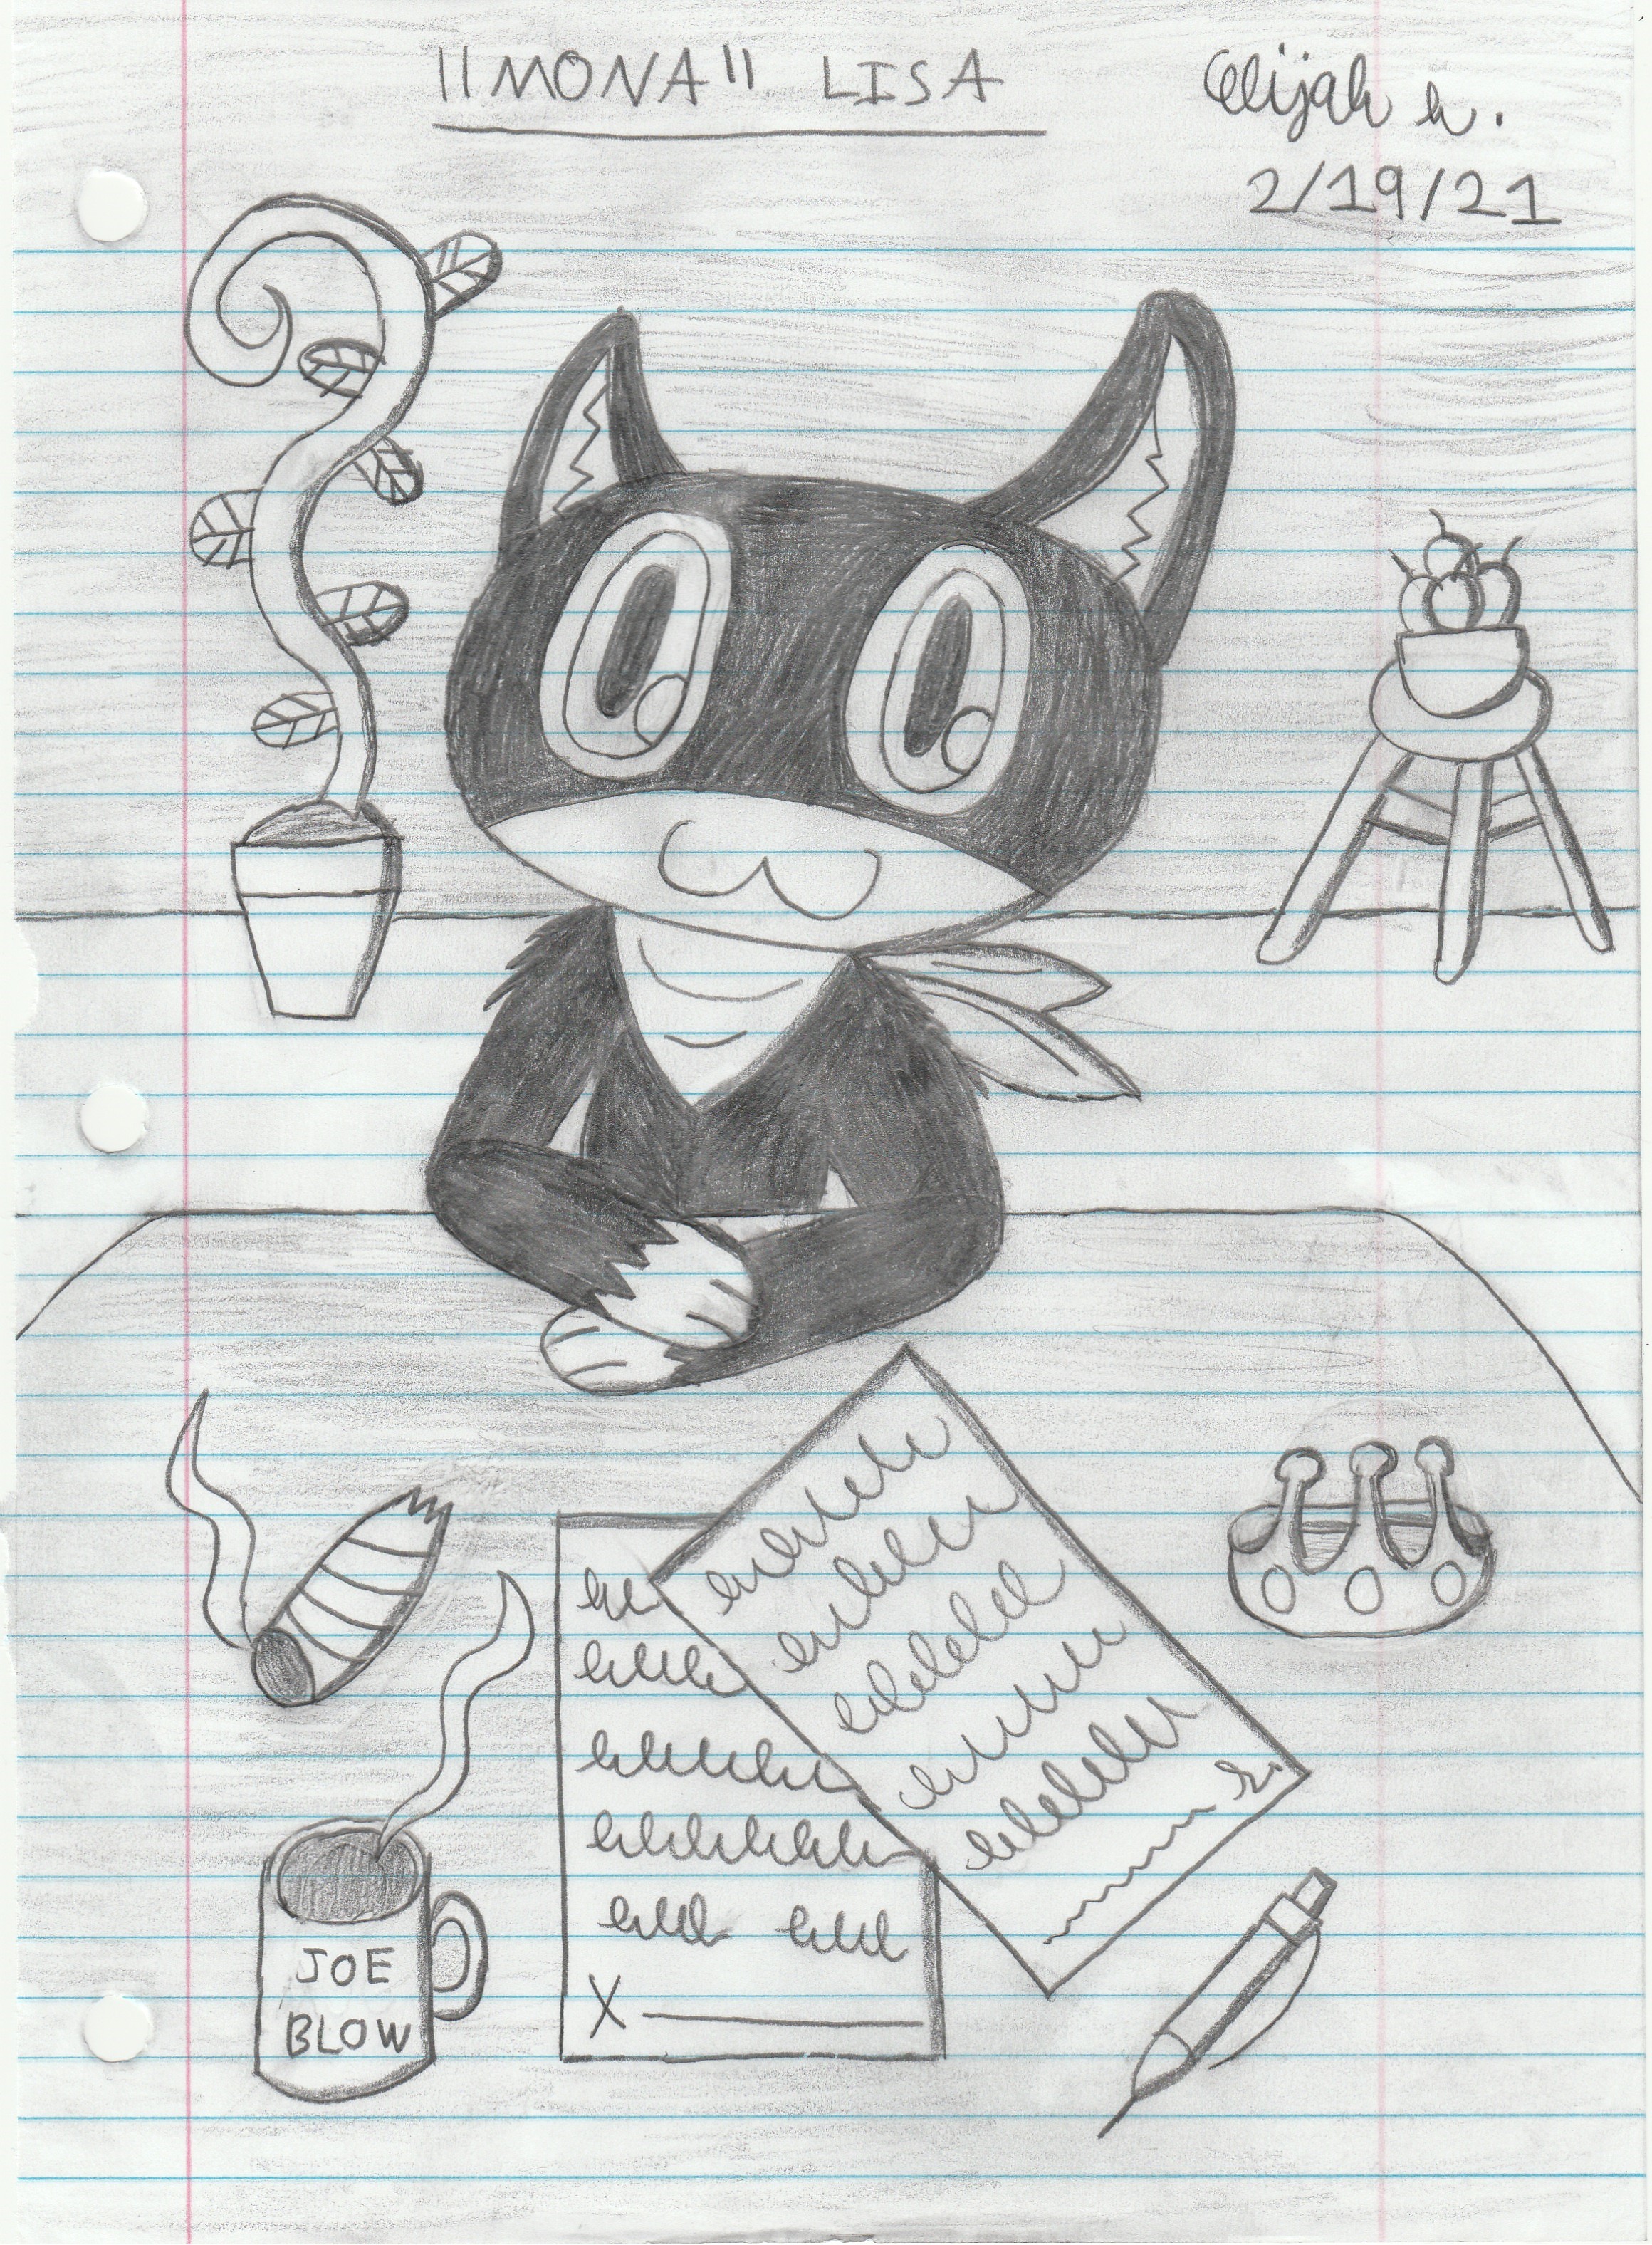 "MONA" LISA
Elijah h.
2/19/21
JOE
BLOW
X